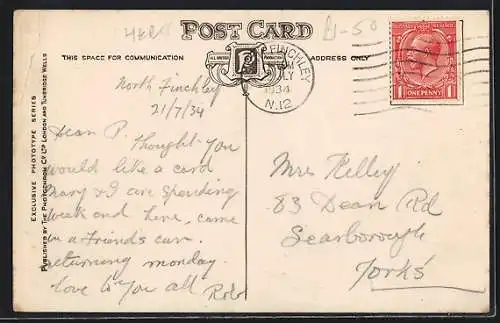 HERT
£1-50
POST CARD
THIS SPACE FOR COMMUNICATION
ADDRESS ONLY
FINCHLEY
JLY
1934
N.12
ONE PENNY
EXCLUSIVE PHOTOTYPE SERIES
PUBLISHED BY THE PHOTOCHROM CO. LTD LONDON AND TUNBRIDGE WELLS
North Finchley
21/7/34
Dear P. Thought you
would like a card
Mary & I are spending
week end here, came
in a friends car.
returning monday.
love to you all Rob
Mrs Kelley
83 Dean Rd
Scarborough
Yorks